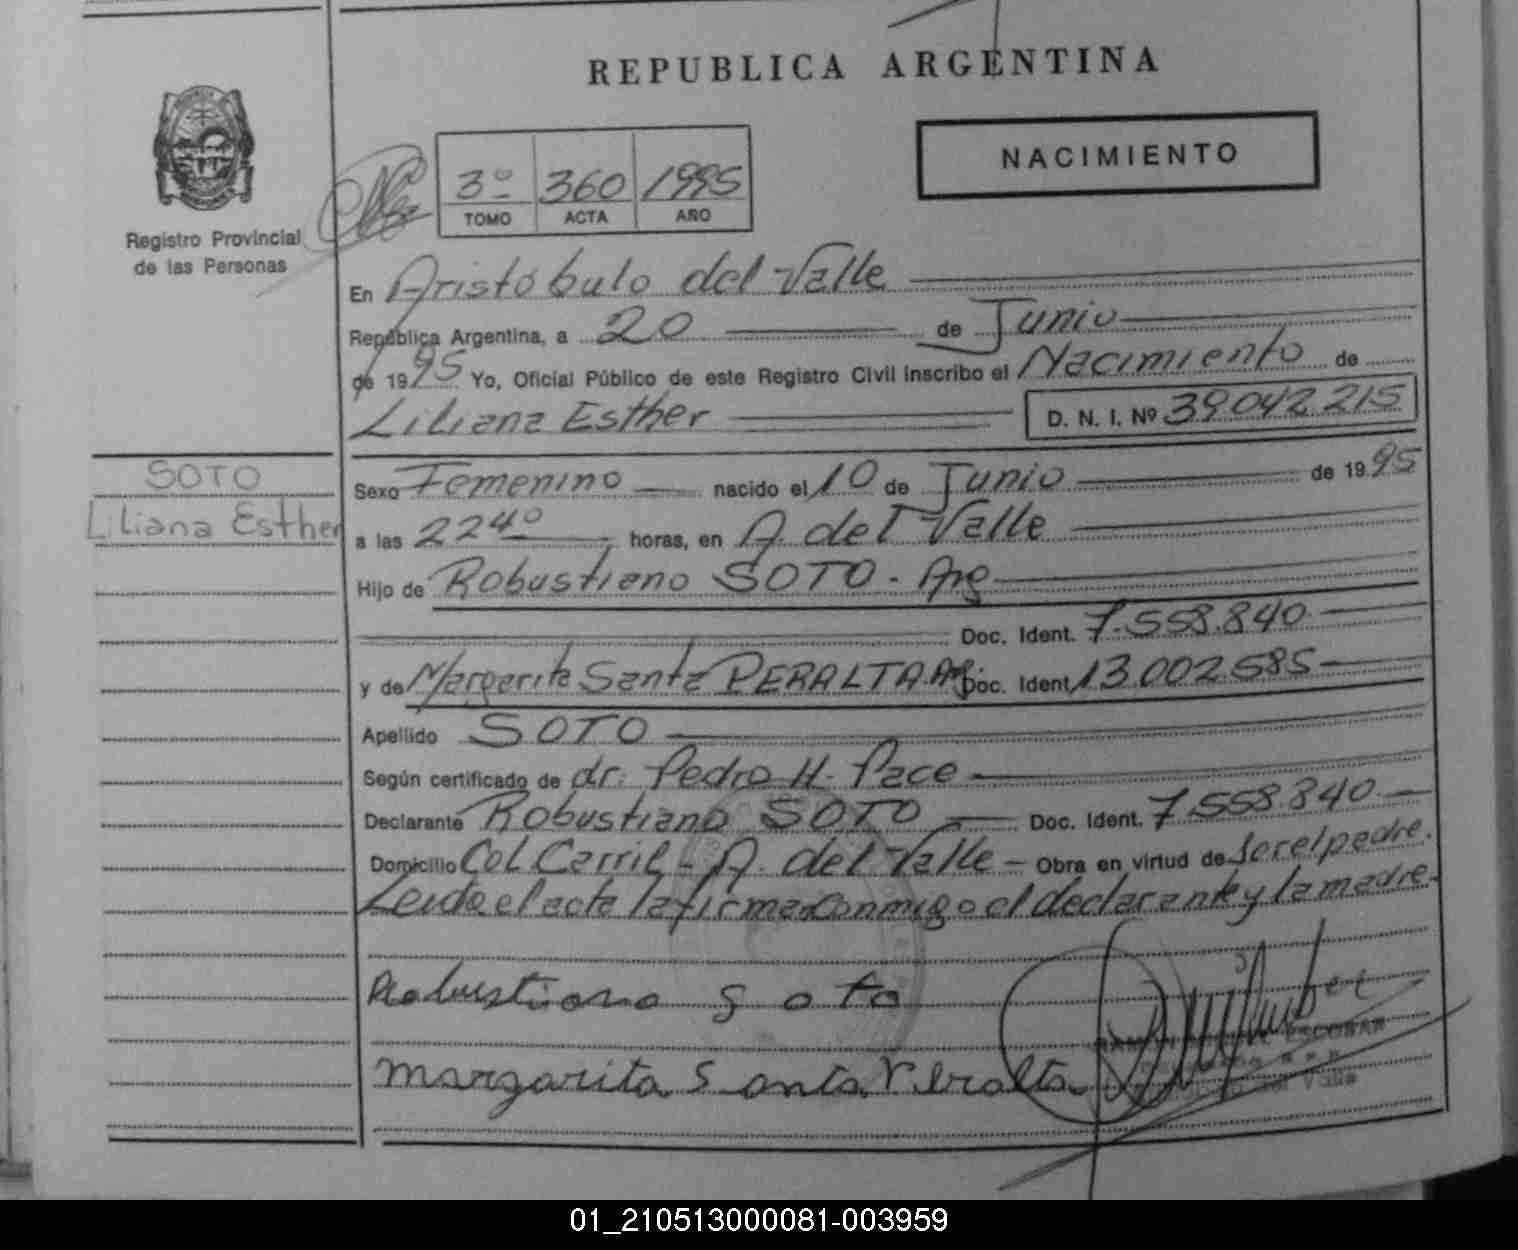 REPUBLICA ARGENTINA
NACIMIENTO
3º 360 1995
TOMO ACTA AÑO
Registro Provincial
de las Personas
En Aristóbulo del Valle
República Argentina, a 20 de Junio
de 1995 Yo, Oficial Público de este Registro Civil inscribo el Nacimiento de
Liliana Esther D. N. I. Nº 39.042.215
SOTO
Liliana Esther
Sexo Femenino nacido el 10 de Junio de 1995
a las 22 40 horas, en A. del Valle
Hijo de Robustiano SOTO - Arg
Doc. Ident. 7.558.840
y de Margarita Santa PERALTA Arg. Doc. Ident 13.002.585
Apellido SOTO
Según certificado de dr. Pedro H. Pace
Declarante Robustiano SOTO Doc. Ident. 7.558.840
Domicilio Col. Carril - A. del Valle - Obra en virtud de ser el padre.
Leída el acta la firman conmigo el declarante y la madre.
Robustiano Soto
Margarita Santa Peralta
ESCOBAR
01_210513000081-003959